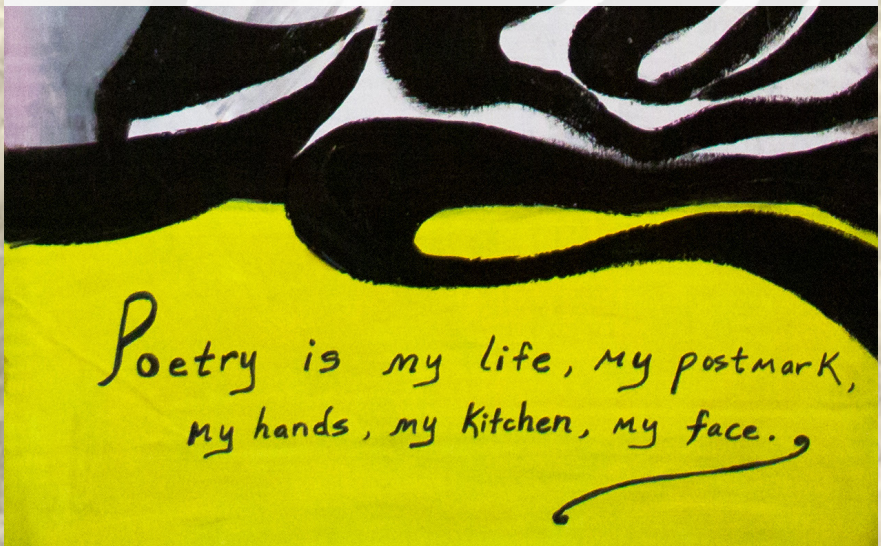 Poetry is my life, my postmark,
my hands, my kitchen, my face.